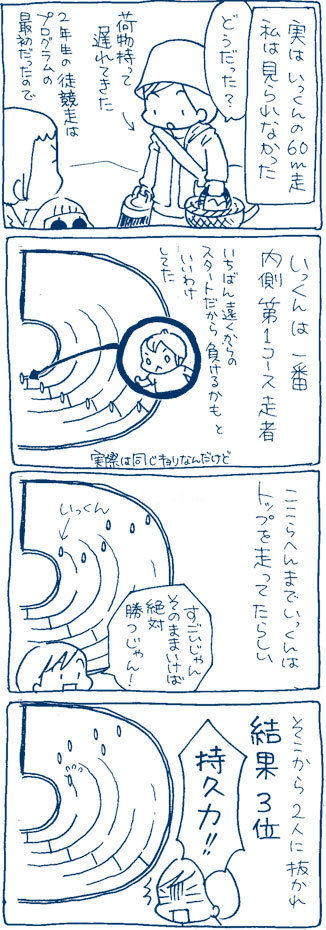 実はいっくんの60m走
私は見られなかった
どうだった?
荷物持って
遅れてきた
2年生の徒競走は
プログラムの
最初だったので
いっくんは一番
内側 第1コース走者
いちばん遠くからの
スタートだから負けるかも と
いいわけ
してた
実際は同じキョリなんだけど
ここらへんまでいっくんは
トップを走ってたらしい
いっくん
すごいじゃん
そのままいけば
絶対
勝つじゃん!
そこから2人に抜かれ
結果3位
持久力!!